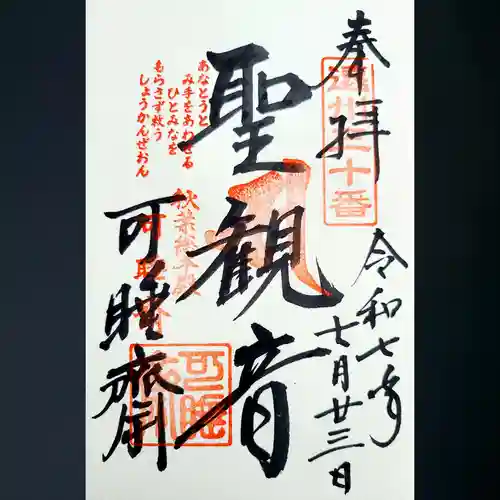 奉拝
遠州三十番
令和七年
七月廿三日
聖観音
あなとうと
み手をあわせる
ひとみなを
もらさず救う
しょうかんぜおん
秋葉総本殿
可睡斎
可睡齋